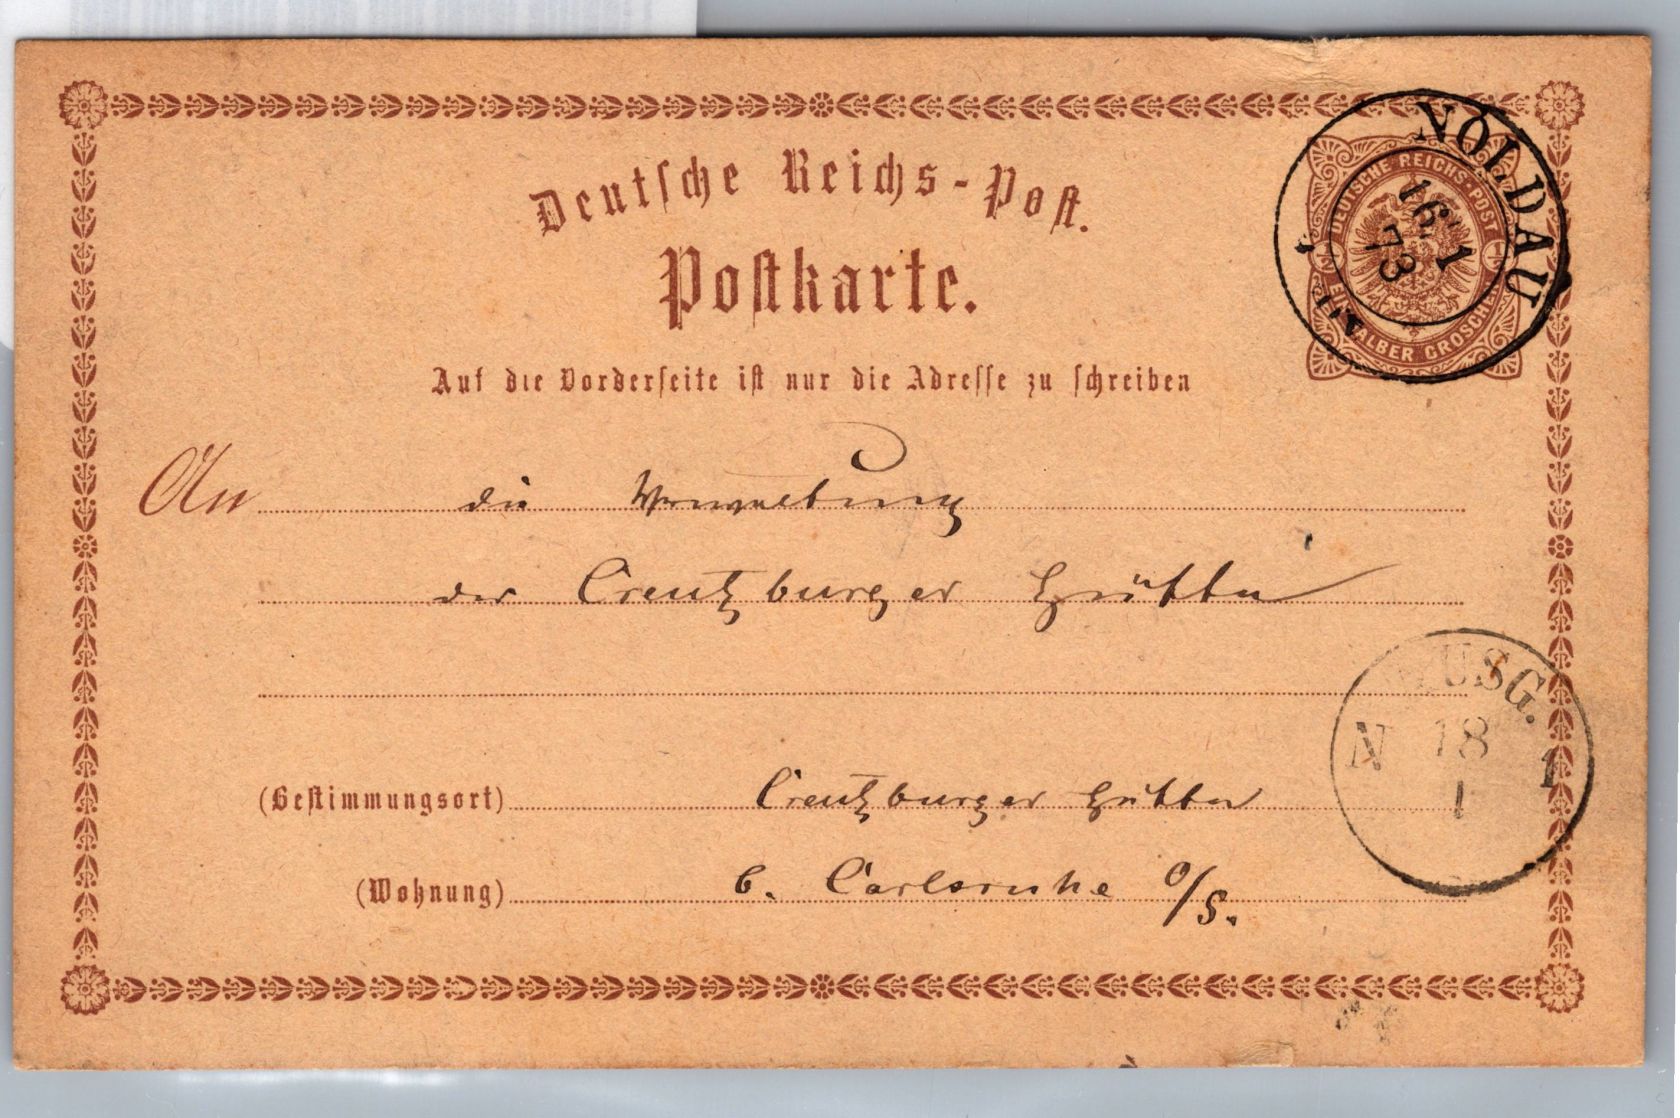 Deutsche Reichs-Post.
Postkarte.
NOLDAU
16 1
73
DEUTSCHE REICHS-POST
EIN HALBER GROSCHEN
Auf die Vorderseite ist nur die Adresse zu schreiben
An die Verwaltung
der Creutzburger Hütte
AUSG.
N 18 1
1
(Bestimmungsort) Creutzburger Hütte
(Wohnung) b. Carlsruhe O/S.